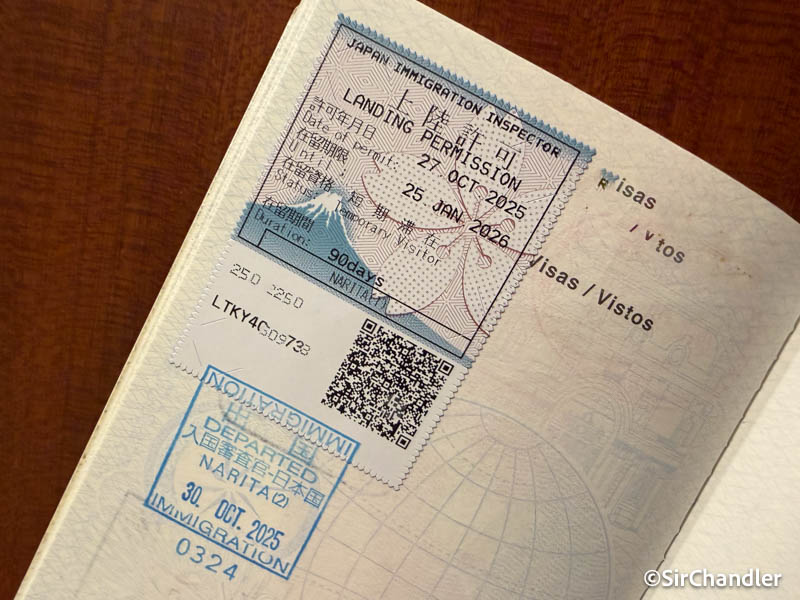 JAPAN IMMIGRATION INSPECTOR
上陸許可
LANDING PERMISSION
許可年月日
Date of permit: 27 OCT 2025
在留期限
Until: 25 JAN 2026
在留資格 短期滞在
Status: Temporary Visitor
在留期間
Duration: 90days
NARITA(1)
LTKY4G09738
Visas
Visas / Vistos
IMMIGRATION
出国
DEPARTED
入国審査官-日本国
NARITA(2)
30. OCT. 2025
IMMIGRATION
0324
©SirChandler